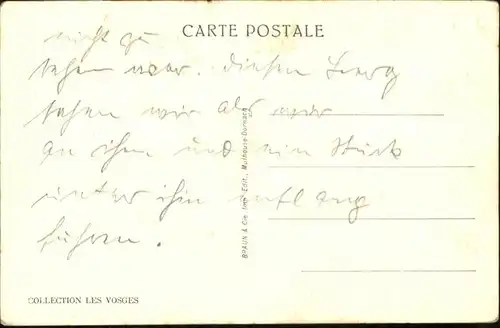 CARTE POSTALE
nicht zu
sehen war. diesen Berg
sehen wir als wir
an ihm und ein Stück
unter ihm entlang
fuhren.
BRAUN & Cie, Imp.-Édit., Mulhouse-Dornach
COLLECTION LES VOSGES